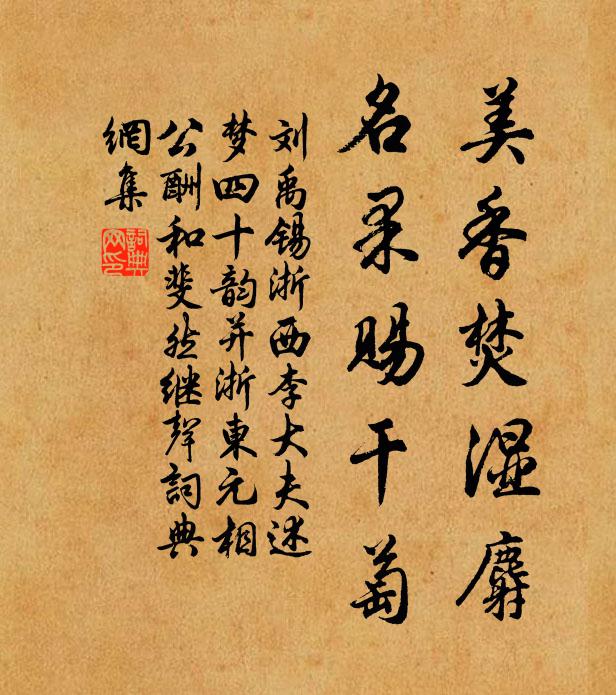 美香焚湿麝
名果赐干萄
刘禹锡浙西李大夫述
梦四十韵并浙东元相
公酬和斐然继声词典
網集
詞典網印